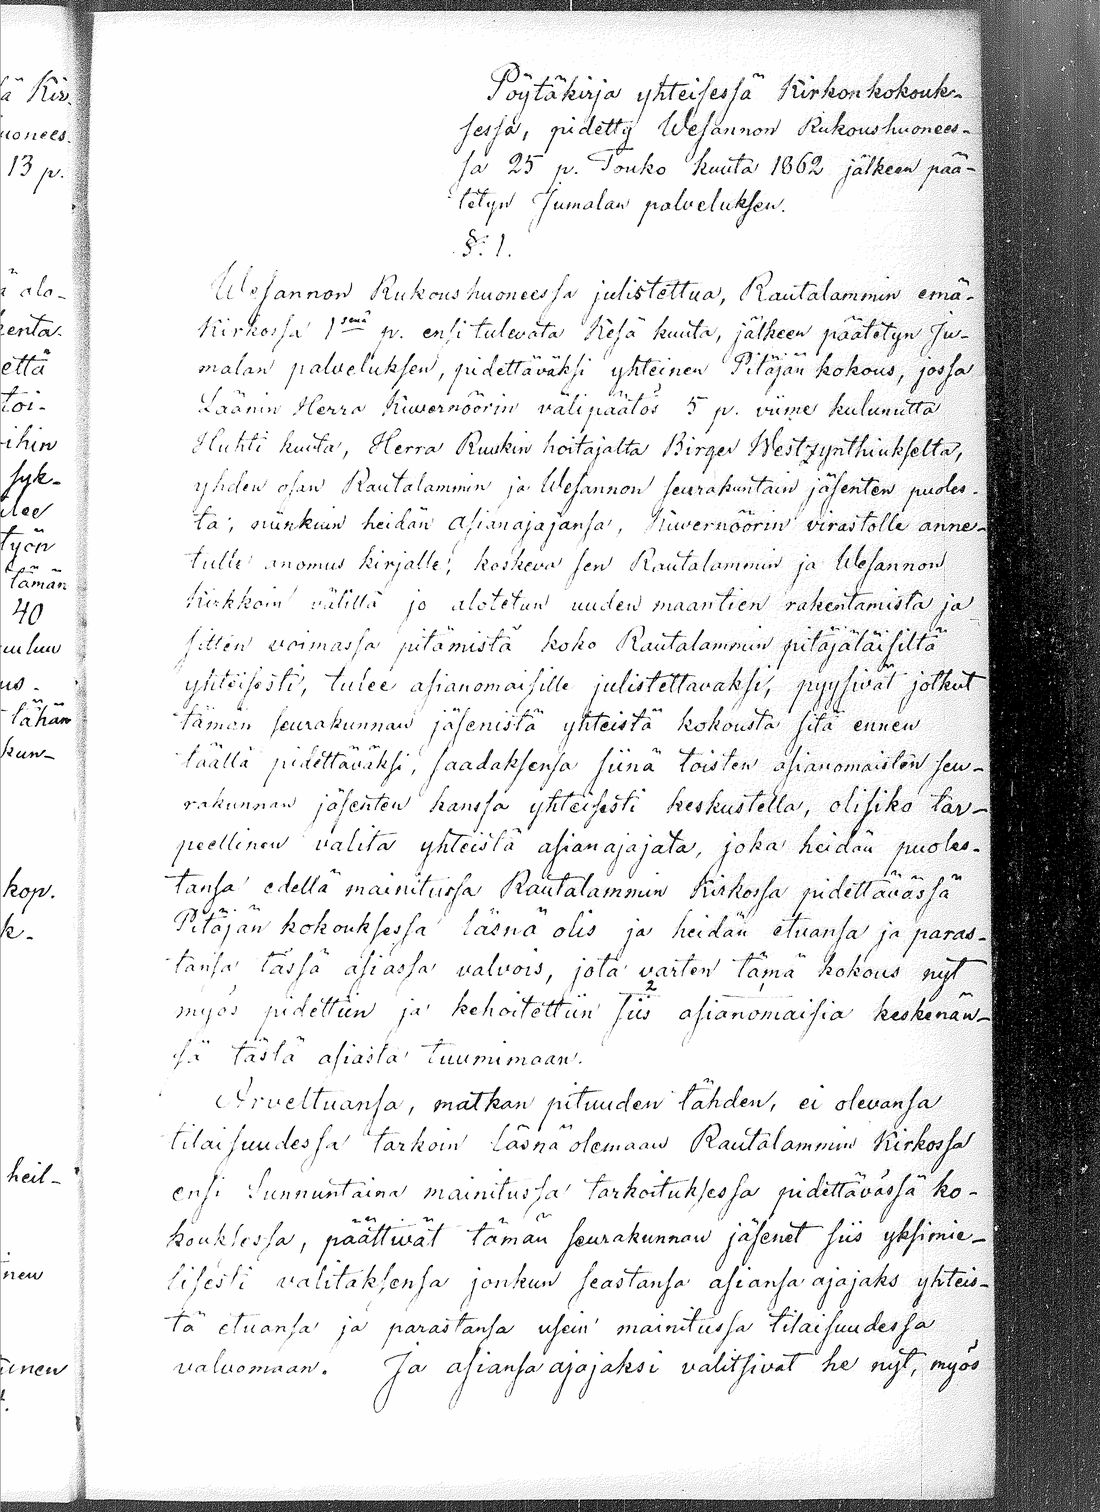 ä Kir-
uonees.
13 p.
ä ala-
kenta.
että
toi-
ihin
syk-
ulee
työn
tämän
40
uuluu
us.
tähän
kun-
kop.
k.
heil-
nen
unen
Pöytäkirja yhteisessä Kirkonkokouk-
sessa, pidetty Wesannon Rukoushuonees-
sa 25 p. Touko kuuta 1862 jälkeen pää-
tetyn Jumalan palveluksen.
§: 1.
Wesannon Rukoushuoneessa julistettua, Rautalammin emä-
Kirkossa 1senä p. ensitulevata Kesä kuuta, jälkeen päätetyn Ju-
malan palveluksen, pidettäväksi yhteinen Pitäjän kokous, jossa
Läänin Herra Kuvernöörin välipäätös 5 p. viime kulunutta
Huhti kuuta, Herra Ruukin hoitajalta Birger Westzynthiukselta,
yhden osan Rautalammin ja Wesannon seurakuntain jäsenten puoles-
ta, niinkuin heidän asianajajansa, Kuvernöörin virastolle anne-
tulle anomus kirjalle, koskeva sen Rautalammin ja Wesannon
Kirkkoin välillä jo alotetun uuden maantien rakentamista ja
sitten voimassa pitämistä koko Rautalammin pitäjäläisiltä
yhteisesti, tulee asianomaisille julistettavaksi, pyysivät jotkut
tämän seurakunnan jäsenistä yhteistä kokousta sitä ennen
täällä pidettäväksi, saadaksensa siinä toisten asianomaisten seu-
rakunnan jäsenten kanssa yhteisesti keskustella, olisiko tar-
peellinen valita yhteistä asianajajata, joka heidän puoles-
tansa edellä mainitussa Rautalammin Kirkossa pidettävässä
Pitäjän kokouksessa läsnä olis ja heidän etuansa ja paras-
tansa tässä asiassa valvois, jota varten tämä kokous nyt
myös pidettiin ja kehoitettiin siis 2 asianomaisia keskenän-
sä tästä asiasta tuumimaan.
Arveltuansa, matkan pituuden tähden, ei olevansa
tilaisuudessa tarkoin läsnä olemaan Rautalammin Kirkossa
ensi Sunnuntaina mainitussa tarkoituksessa pidettävässä ko-
kouksessa, päättivät tämän seurakunnan jäsenet siis yksimie-
lisesti valitaksensa jonkun seastansa asiansa ajajaks yhteis-
tä etuansa ja parastansa usein mainitussa tilaisuudessa
valvomaan. Ja asiansa ajajaksi valitsivat he nyt, myös